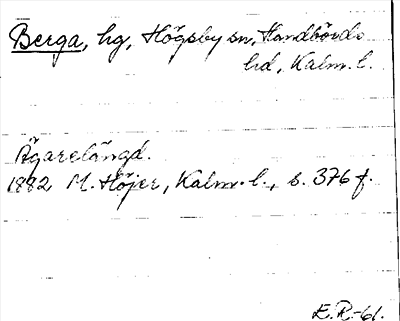 Berga, hg, Högsby sn, Handbörds
hd, Kalm. l.
Ägarelängd.
1882 M. Höjer, Kalm. l., s. 376 f.
E.R-61.